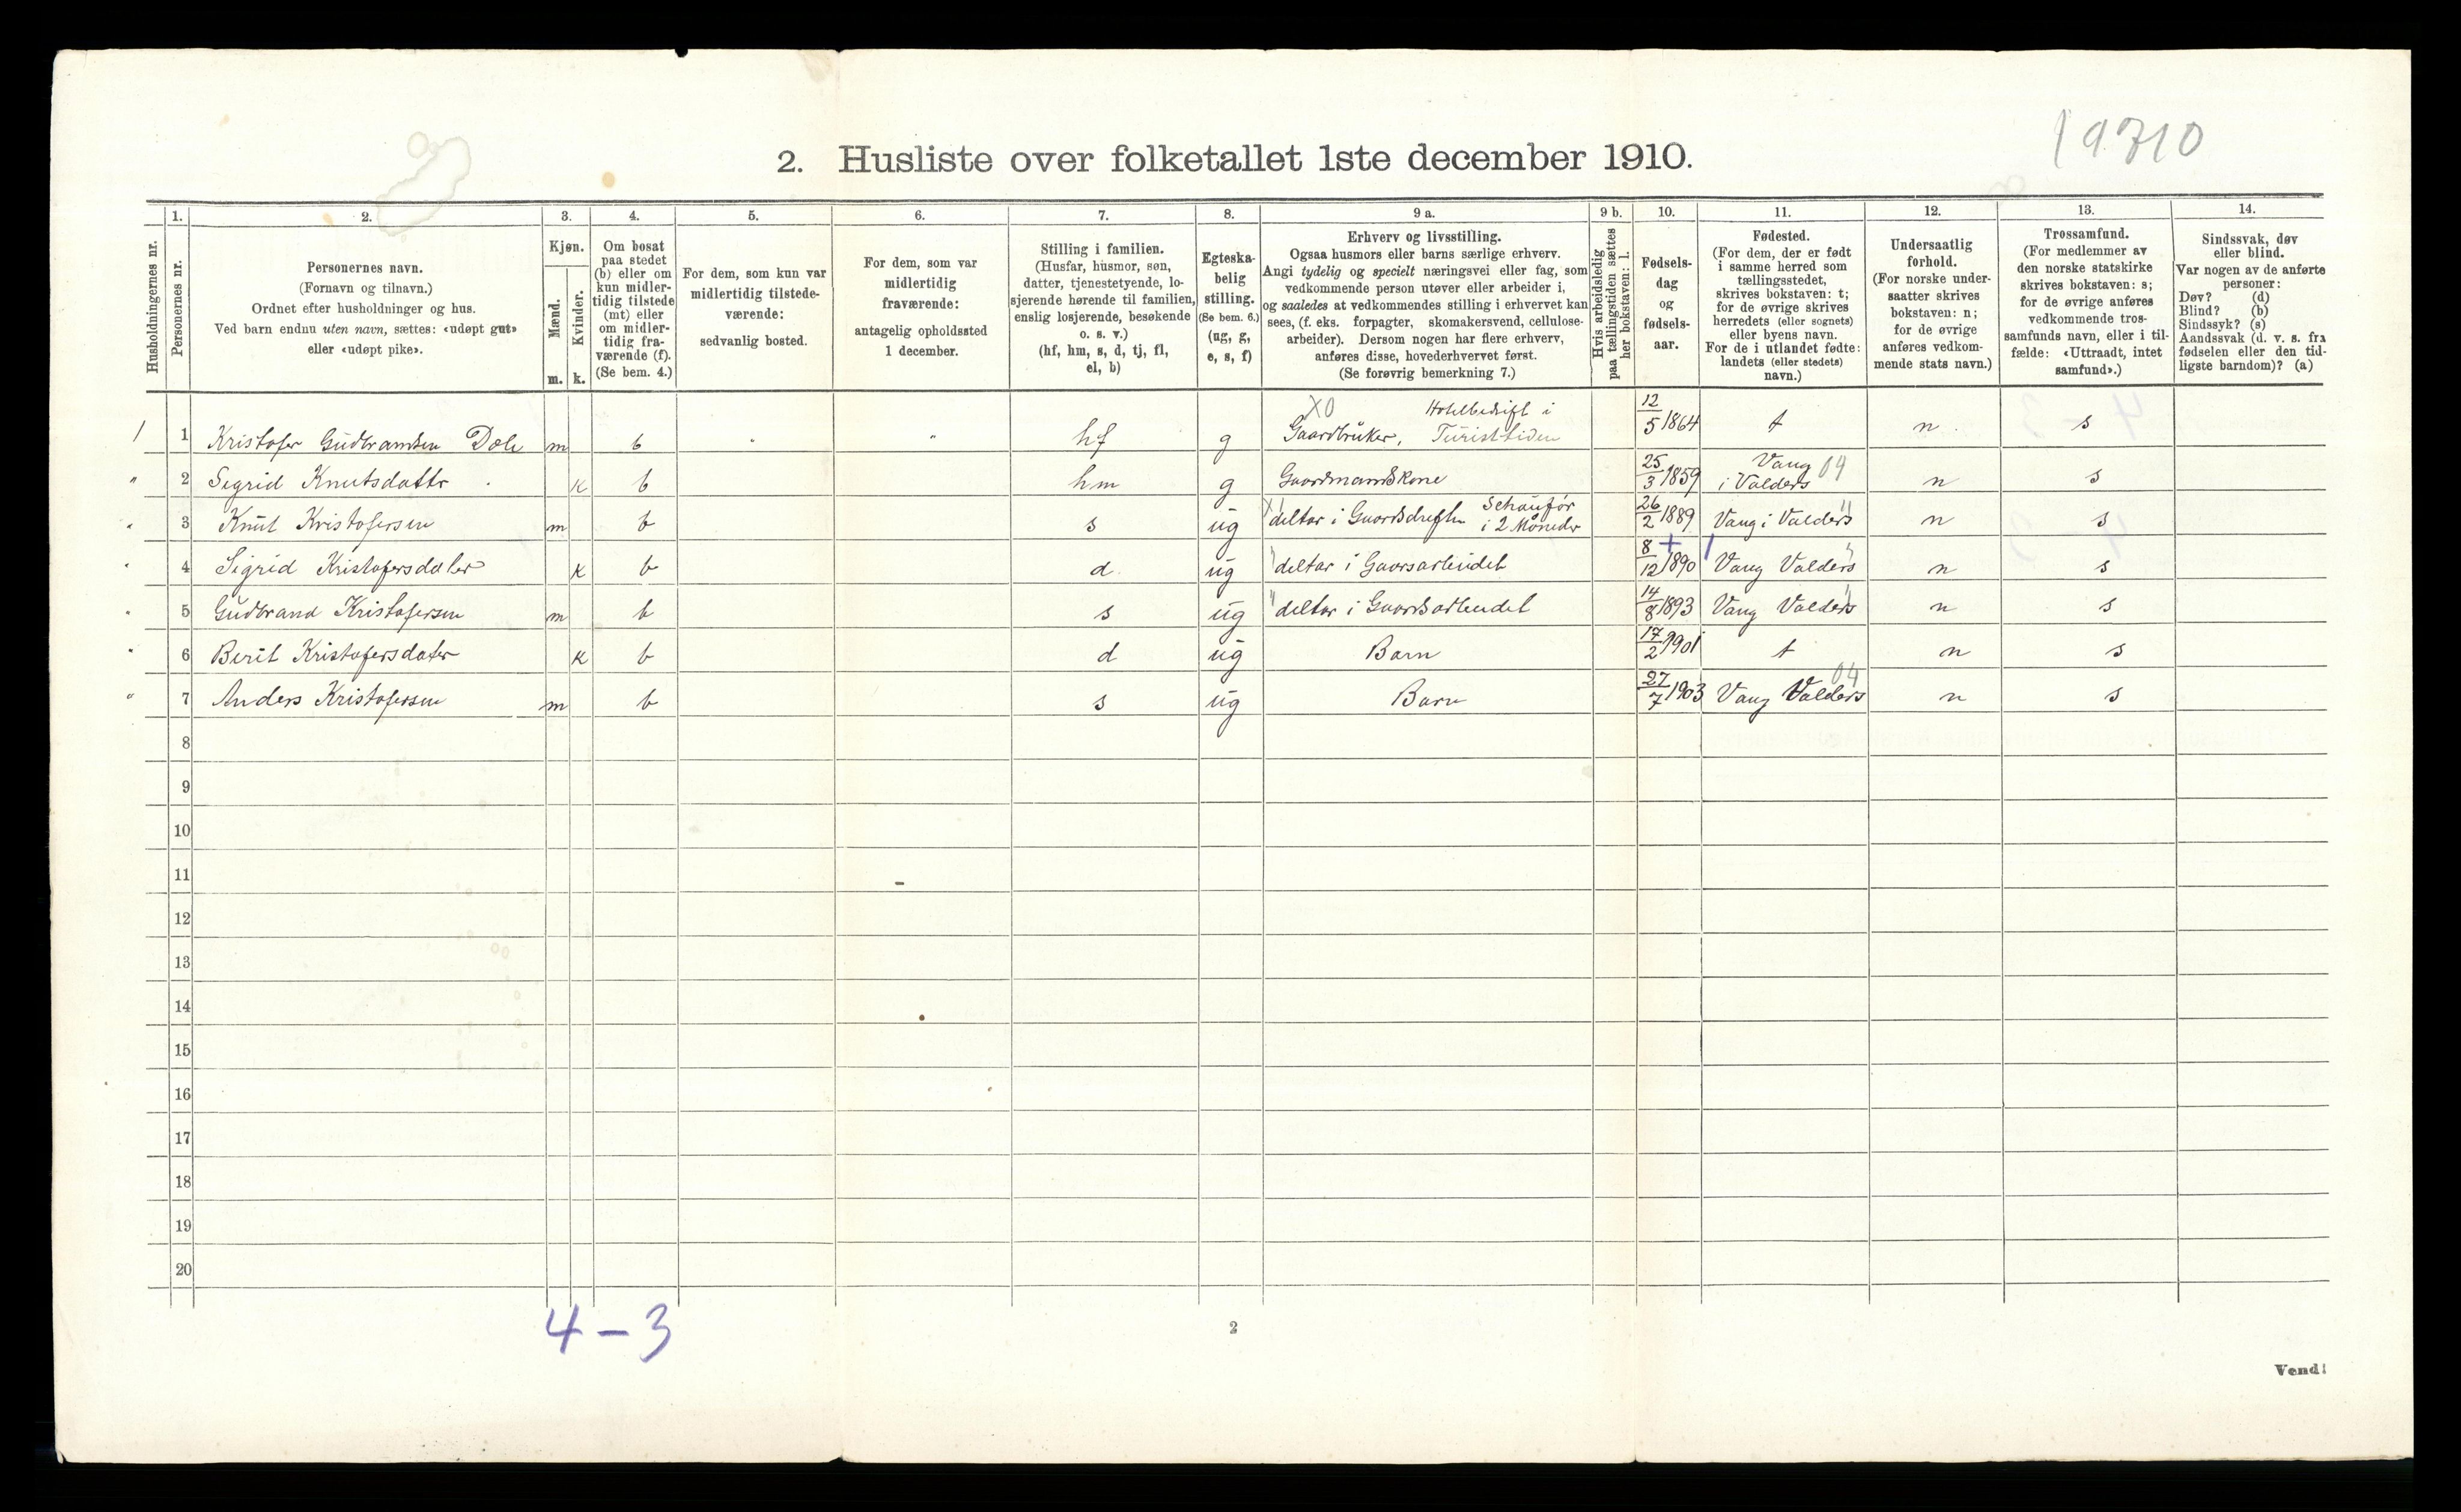 19710
2. Husliste over folketallet 1ste december 1910.
1. 2. 3. 4. 5. 6. 7. 8. 9 a. 9 b. 10. 11. 12. 13. 14.
Husholdningernes nr.
Personernes nr.
Personernes navn.
(Fornavn og tilnavn.)
Ordnet efter husholdninger og hus.
Ved barn endnu uten navn, sættes: «udøpt gut»
eller «udøpt pike».
Kjøn.
Mænd.
Kvinder.
m. k.
Om bosat
paa stedet
(b) eller om
kun midler-
tidig tilstede
(mt) eller
om midler-
tidig fra-
værende (f).
(Se bem. 4.)
For dem, som kun var
midlertidig tilstede-
værende:
sedvanlig bosted.
For dem, som var
midlertidig
fraværende:
antagelig opholdssted
1 december.
Stilling i familien.
(Husfar, husmor, søn,
datter, tjenestetyende, lo-
sjerende hørende til familien,
enslig losjerende, besøkende
o. s. v.)
(hf, hm, s, d, tj, fl,
el, b)
Egteska-
belig
stilling.
(Se bem. 6.)
(ug, g,
e, s, f)
Erhverv og livsstilling.
Ogsaa husmors eller barns særlige erhverv.
Angi tydelig og specielt næringsvei eller fag, som
vedkommende person utøver eller arbeider i,
og saaledes at vedkommendes stilling i erhvervet kan
sees, (f. eks. forpagter, skomakersvend, cellulose-
arbeider). Dersom nogen har flere erhverv,
anføres disse, hovederhvervet først.
(Se forøvrig bemerkning 7.)
Hvis arbeidsledig
paa tællingstiden sættes
her bokstaven: l.
Fødsels-
dag
og
fødsels-
aar.
Fødested.
(For dem, der er født
i samme herred som
tællingsstedet,
skrives bokstaven: t;
for de øvrige skrives
herredets (eller sognets)
eller byens navn.
For de i utlandet fødte:
landets (eller stedets)
navn.)
Undersaatlig
forhold.
(For norske under-
saatter skrives
bokstaven: n;
for de øvrige
anføres vedkom-
mende stats navn.)
Trossamfund.
(For medlemmer av
den norske statskirke
skrives bokstaven: s;
for de øvrige anføres
vedkommende tros-
samfunds navn, eller i til-
fælde: «Uttraadt, intet
samfund».)
Sindssvak, døv
eller blind.
Var nogen av de anførte
personer:
Døv? (d)
Blind? (b)
Sindssyk? (s)
Aandssvak (d. v. s. fra
fødselen eller den tid-
ligste barndom)? (a)
X0 Hotelbedrift i
1 1 Kristofer Gudbrandsen Dole m b " " hf g Gaardbruker, Turisttiden 12/5 1864 t n s
" 2 Sigrid Knutsdatter k b hm g Gaardmandskone 25/3 1859 Vang i Valders 04 n s
" 3 Knut Kristofersen m b s ug deltar i Gaardsdriften Schauffør i 2 Måneder 26/2 1889 Vang i Valders " n s
" 4 Sigrid Kristofersdater k b d ug " deltar i Gaarsarbeidet 8/12 1890 Vang Valders " n s
" 5 Gudbrand Kristofersen m b s ug " deltar i Gaardsarbeidet 14/8 1893 Vang Valders " n s
" 6 Berit Kristofersdater k b d ug Barn 17/2 1901 t n s
" 7 Anders Kristofersen m b s ug Barn 27/7 1903 Vang Valders 04 n s
8
9
10
11
12
13
14
15
16
17
18
19
20
4 – 3
2
Vend!